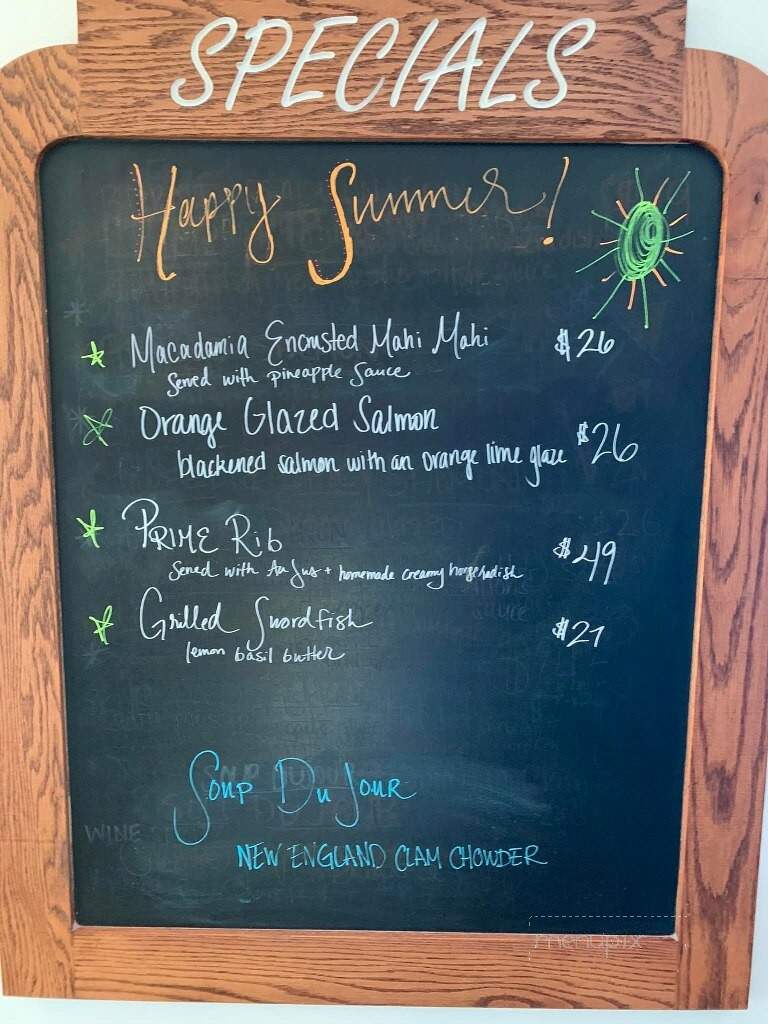 SPECIALS
Happy Summer!
Macadamia Encrusted Mahi Mahi $26
Served with pineapple sauce
Orange Glazed Salmon $26
blackened salmon with an orange lime glaze
PRIME RIB $49
Served with Au Jus + homemade creamy horseradish
Grilled Swordfish
lemon basil butter
Soup Du Jour
NEW ENGLAND CLAM CHOWDER
WINE
menupix